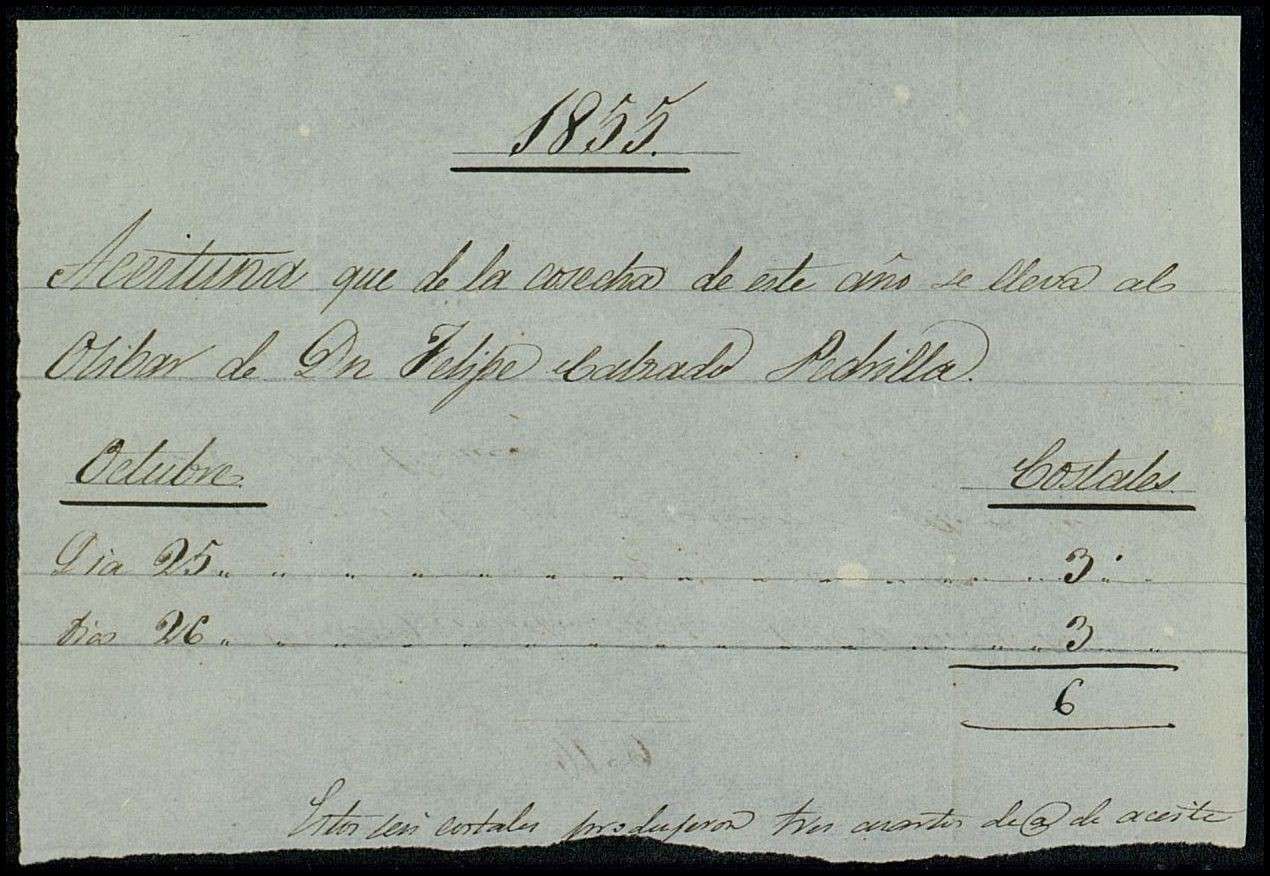 1855.
Aceituna que de la cosecha de este año se lleva al
Olibar de Dn Felipe Calzado Pedrilla.
Octubre. Costales.
Dia 25 3
Dia 26 3
6
Estos seis costales produjeron tres cuartos de @ de aceite